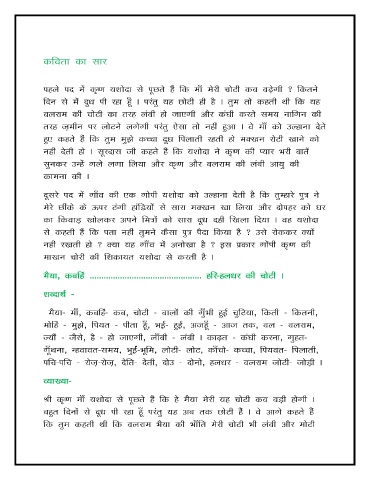 कविता का सार
पहले पद में कृष्ण यशोदा से पूछते हैं कि माँ मेरी चोटी कब बढ़ेगी ? कितने
दिन से मैं दूध पी रहा हूँ । परंतु यह छोटी ही है । तुम तो कहती थी कि यह
बलराम की चोटी का तरह लंबी हो जाएगी और कंघी करते समय नागिन की
तरह ज़मीन पर लोटने लगेगी परंतु ऐसा तो नहीं हुआ । वे माँ को उल्हाना देते
हुए कहते हैं कि तुम मुझे कच्चा दूध पिलाती रहती हो मक्खन रोटी खाने को
नहीं देती हो । सूरदास जी कहते हैं कि यशोदा ने कृष्ण की प्यार भरी बातें
सुनकर उन्हें गले लगा लिया और कृष्ण और बलराम की लंबी आयु की
कामना की ।
दूसरे पद में गाँव की एक गोपी यशोदा को उल्हाना देती है कि तुम्हारे पुत्र ने
मेरे छींके के ऊपर टंगी हांड़ियों से सारा मक्खन खा लिया और दोपहर को घर
का किवाड़ खोलकर अपने मित्रों को सारा दूध दही खिला दिया । वह यशोदा
से कहती हैं कि पता नहीं तुमने कैसा पुत्र पैदा किया है ? उसे रोककर क्यों
नहीं रखती हो ? क्या यह गाँव में अनोखा है ? इस प्रकार गोपी कृष्ण की
माखन चोरी की शिकायत यशोदा से करती हैं ।
मैया, कबहिं ................................................ हरि-हलधर की चोटी ।
शब्दार्थ -
मैया- माँ, कबहिं- कब, चोटी - बालों की गुँथी हुई चुटिया, किती - कितनी,
मोहिं - मुझे, पियत - पीता हूँ, भई- हुई, अजहूँ - आज तक, बल - बलराम,
ज्यौं - जैसे, है - हो जाएगी, लाँबी - लंबी । काढ़त - कंघी करना, गुहत-
गूँथना, न्हवावत-समय, भुइँ-भूमि, लोटी- लोट, काँचो- कच्चा, पियवत- पिलाती,
पचि-पचि - रोज़-रोज़, देति- देती, दोउ - दोनो, हलधर - बलराम जोटी- जोड़ी ।
व्याख्या-
श्री कृष्ण माँ यशोदा से पूछते हैं कि हे मैया मेरी यह चोटी कब बड़ी होगी ।
बहुत दिनों से दूध पी रहा हूँ परंतु यह अब तक छोटी हैं । वे आगे कहते हैं
कि तुम कहती थी कि बलराम भैया की भाँति मेरी चोटी भी लंबी और मोटी